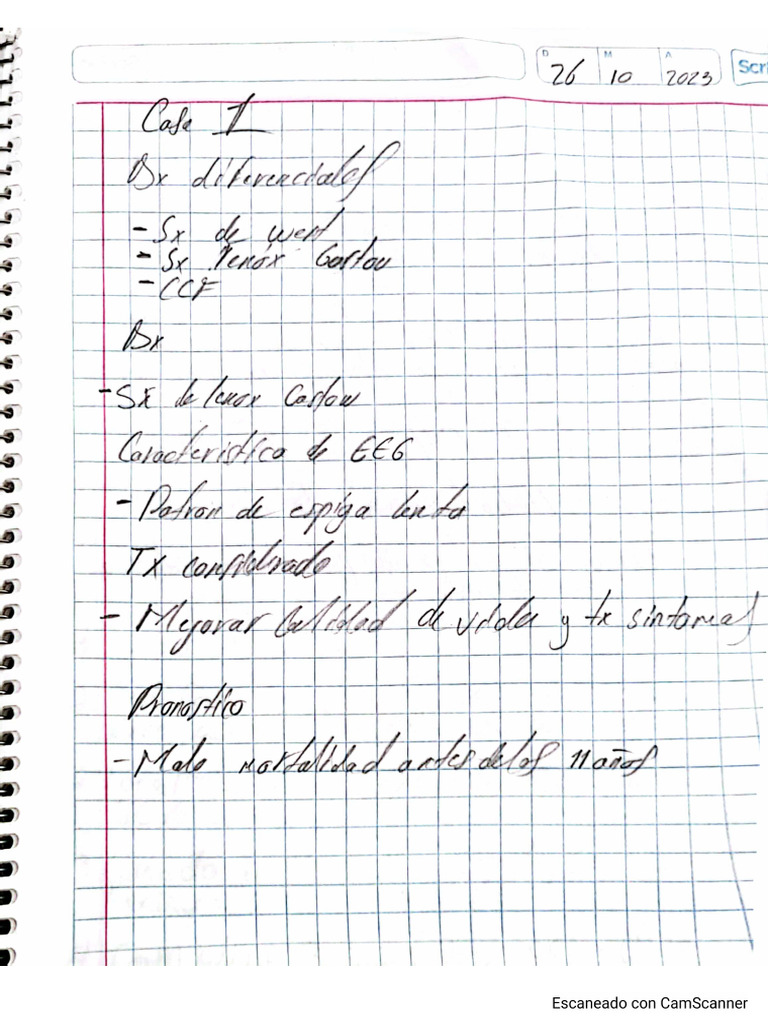 D M A
26 10 2023 Scri
Caso 1
Dx diferenciales
- Sx de west
- Sx lenox Gastau
- CCF
Dx
- Sx de lenox Gastau
Caracteristica de EEG
- Patron de espiga lenta
Tx considerado
- Mejorar calidad de vida y tx sintomas
Pronostico
- Malo mortalidad antes de los 11 años
Escaneado con CamScanner